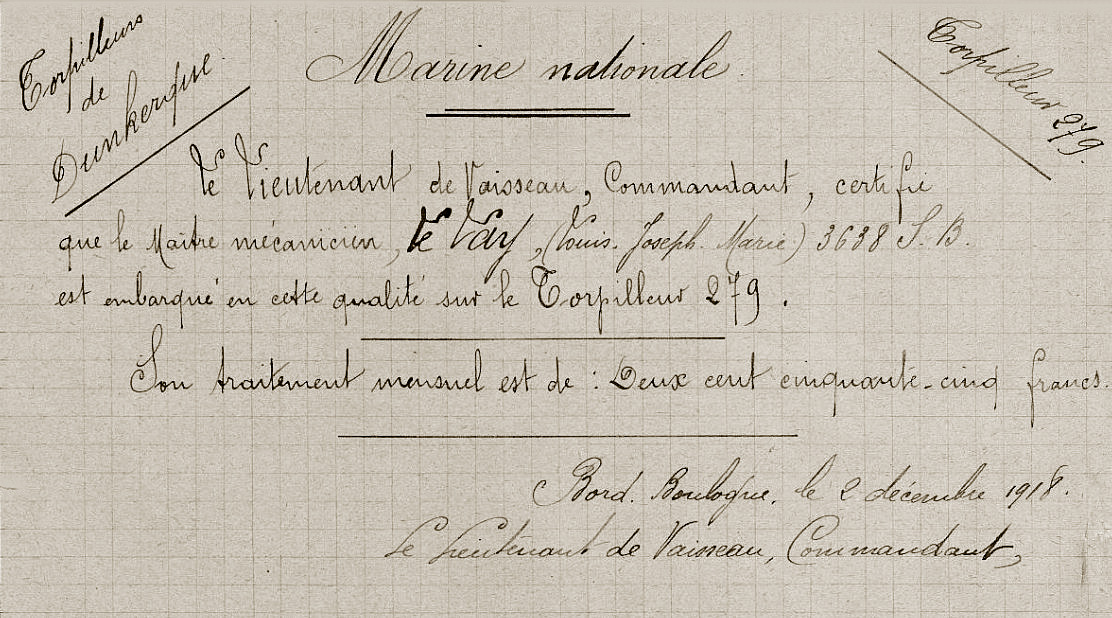 Torpilleurs
de
Dunkerque
Marine nationale
Torpilleur 279.
Le Lieutenant de Vaisseau, Commandant, certifie
que le Maître mécanicien, Le Vay, (Louis. Joseph. Marie) 3638 S. B.
est embarqué en cette qualité sur le Torpilleur 279.
Son traitement mensuel est de : Deux cent cinquante-cinq francs.
Bord. Boulogne, le 2 décembre 1918.
Le Lieutenant de Vaisseau, Commandant,